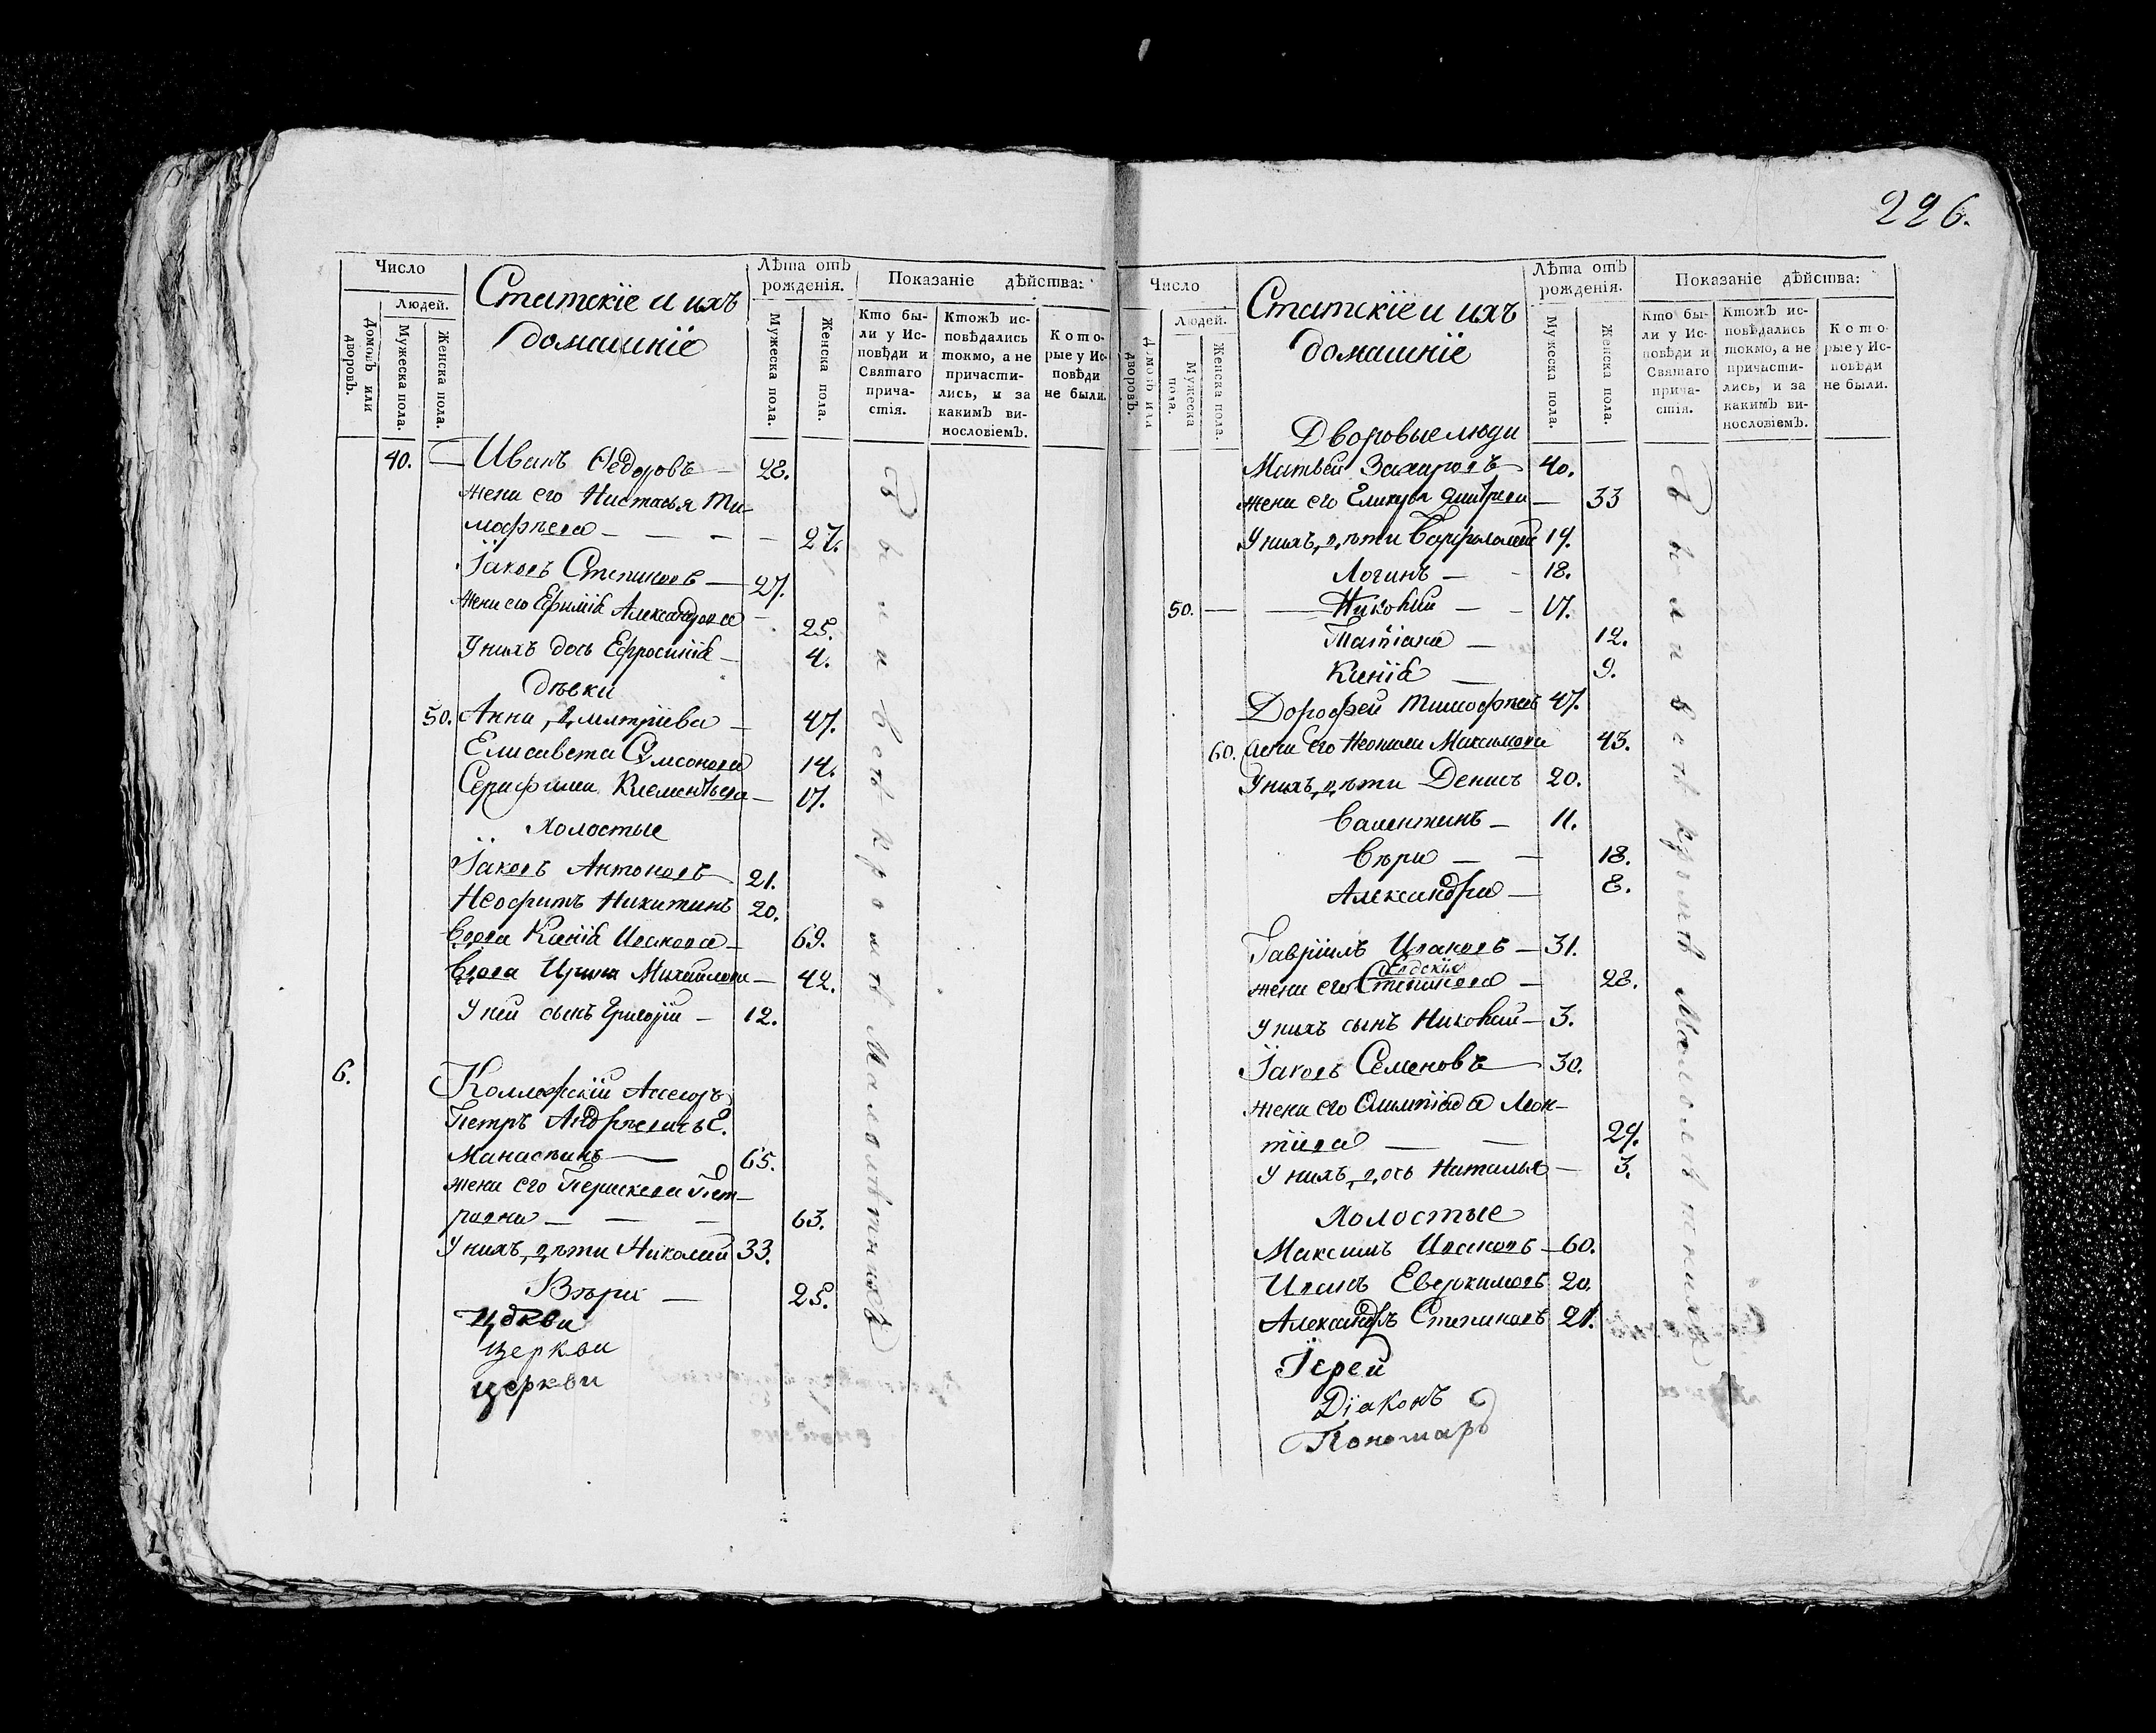 226.
Число
Людей.
Домовъ или дворовъ.
Мужеска пола.
Женска пола.
Статскіе и ихъ
домашніе
Лѣта отъ рожденія.
Мужеска пола.
Женска пола.
Показаніе дѣйства:
Кто были у Исповѣди и Святаго причастія.
Ктожъ исповѣдались токмо, а не причастились, и за какимъ винословіемъ.
Которые у Исповѣди не были.
40. — Иванъ Ѳедоровъ — 28.
жена его Настасья Ти-
мофѣева — — — — 27.
Іаковъ Степановъ — 27.
жена его Ефимія Александрова — 25.
У нихъ дочь Ефросинія — 4.
дѣвки
50. Анна Дмитріева — 47.
Елисавета Самсонова 14.
Серафима Клементьева — 17.
Холостые
Іаковъ Антоновъ 21.
Неофитъ Никитинъ 20.
Вдова Ксенія Исакова — 69.
Вдова Ирина Михайлова — 42.
У ней сынъ Григорій — 12.
6. Коллежскій Ассесоръ
Петръ Андрѣевичъ
65.
жена его Параскева Пет-
ровна — — — 63.
У нихъ дѣти Николай 33.
Вѣра — 25.
Цркви
церкви
церкви
Бывали всѣ кромѣ Малолѣтнихъ
Число
Людей.
Домовъ или дворовъ.
Мужеска пола.
Женска пола.
Статскіе и ихъ
домашніе
Лѣта отъ рожденія.
Мужеска пола.
Женска пола.
Показаніе дѣйства:
Кто были у Исповѣди и Святаго причастія.
Ктожъ исповѣдались токмо, а не причастились, и за какимъ винословіемъ.
Которые у Исповѣди не были.
Дворовые люди
Матвѣй Захаровъ 40.
жена его Гликерія Дмитріева — 33
У нихъ дѣти Варфоломей 19.
Логинъ — - 18.
50. — — Николай — - 17.
Татіана — 12.
Ксенія — 9.
Дорофей Тимофѣевъ 47.
60. жена его Неонила Максимова 43.
У нихъ дѣти Денисъ 20.
Валентинъ — 11.
Вѣра — — 18.
Александра — 8.
Гавріилъ Исаковъ — 31.
Евдокія
жена его Степанова — 28.
У нихъ сынъ Николай — 3.
Іаковъ Семеновъ — 30.
жена его Олимпіада Леон-
тіева — — 29.
У нихъ дочь Наталья — 3.
Холостые
Максимъ Исаковъ — 60.
Иванъ Евдокимовъ 20.
Александръ Степановъ 21.
Іерей
Діаконъ
Пономарь
кромѣ Малолѣтнихъ